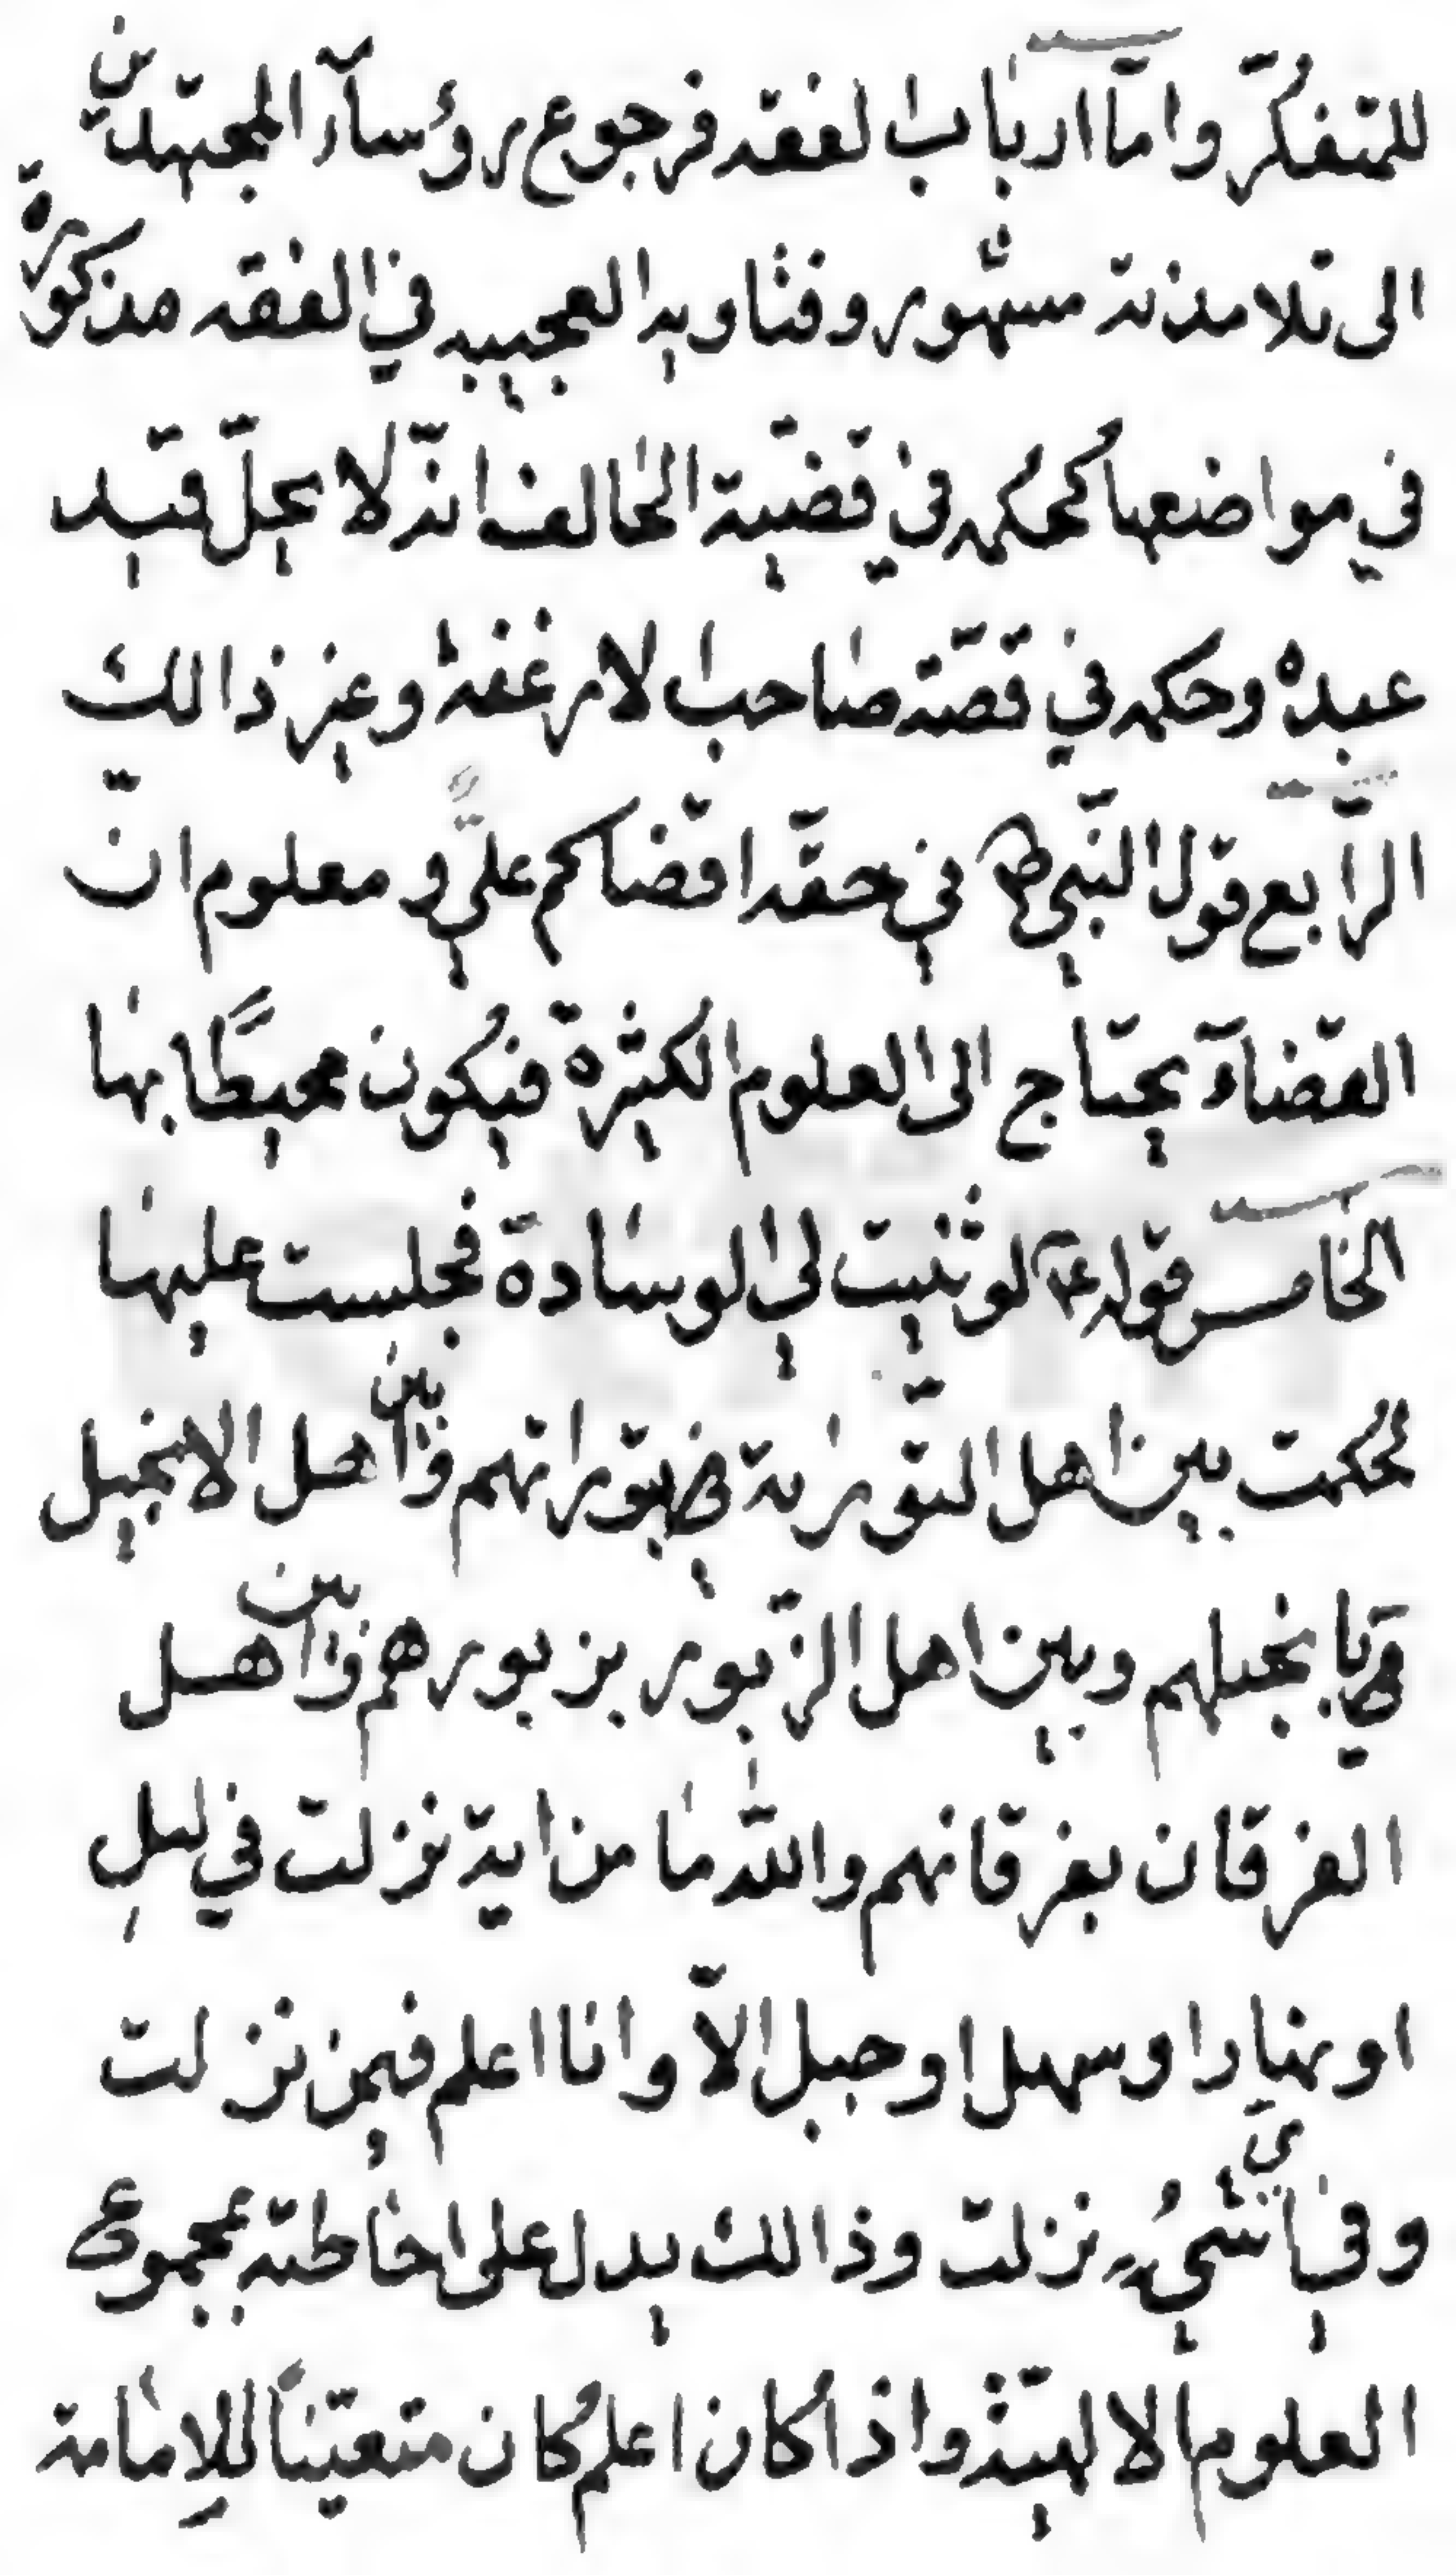 للمتفكّر وامّا ارباب الفقه فرجوع رؤسآء المجتهدين
الى تلامذته مشهور وفتاويه العجيبه في الفقه مذكورة
في مواضعها كحكمه في قضيّة الحالف انّه لا يحلّ قيد
عبده وحكمه في قصّة صاحب الارغفة وغير ذالك
الرّابع قول النّبي ص في حقّه اقضاكم عليّ و معلوم انّ
القضآء يحتاج الى العلوم الكثيرة فيكون محيطًا بها
الخامس قوله ع لو ثنيت لي الوسادة فجلست عليها
لحكمت بين اهل التّورية بتوراتهم وبين اهل الانجيل
بانجيلهم وبين اهل الزّبور بزبورهم وبين اهل
الفرقان بفرقانهم والله ما من اية نزلت في ليلٍ
او نهار او سهل او جبل الاّ وانا اعلم فيمن نزلت
وفي اي شيءٍ نزلت وذالك يدل على احاطته بمجموع
العلوم الالهيّة واذا كان اعلم كان متعيّناً للإمامة